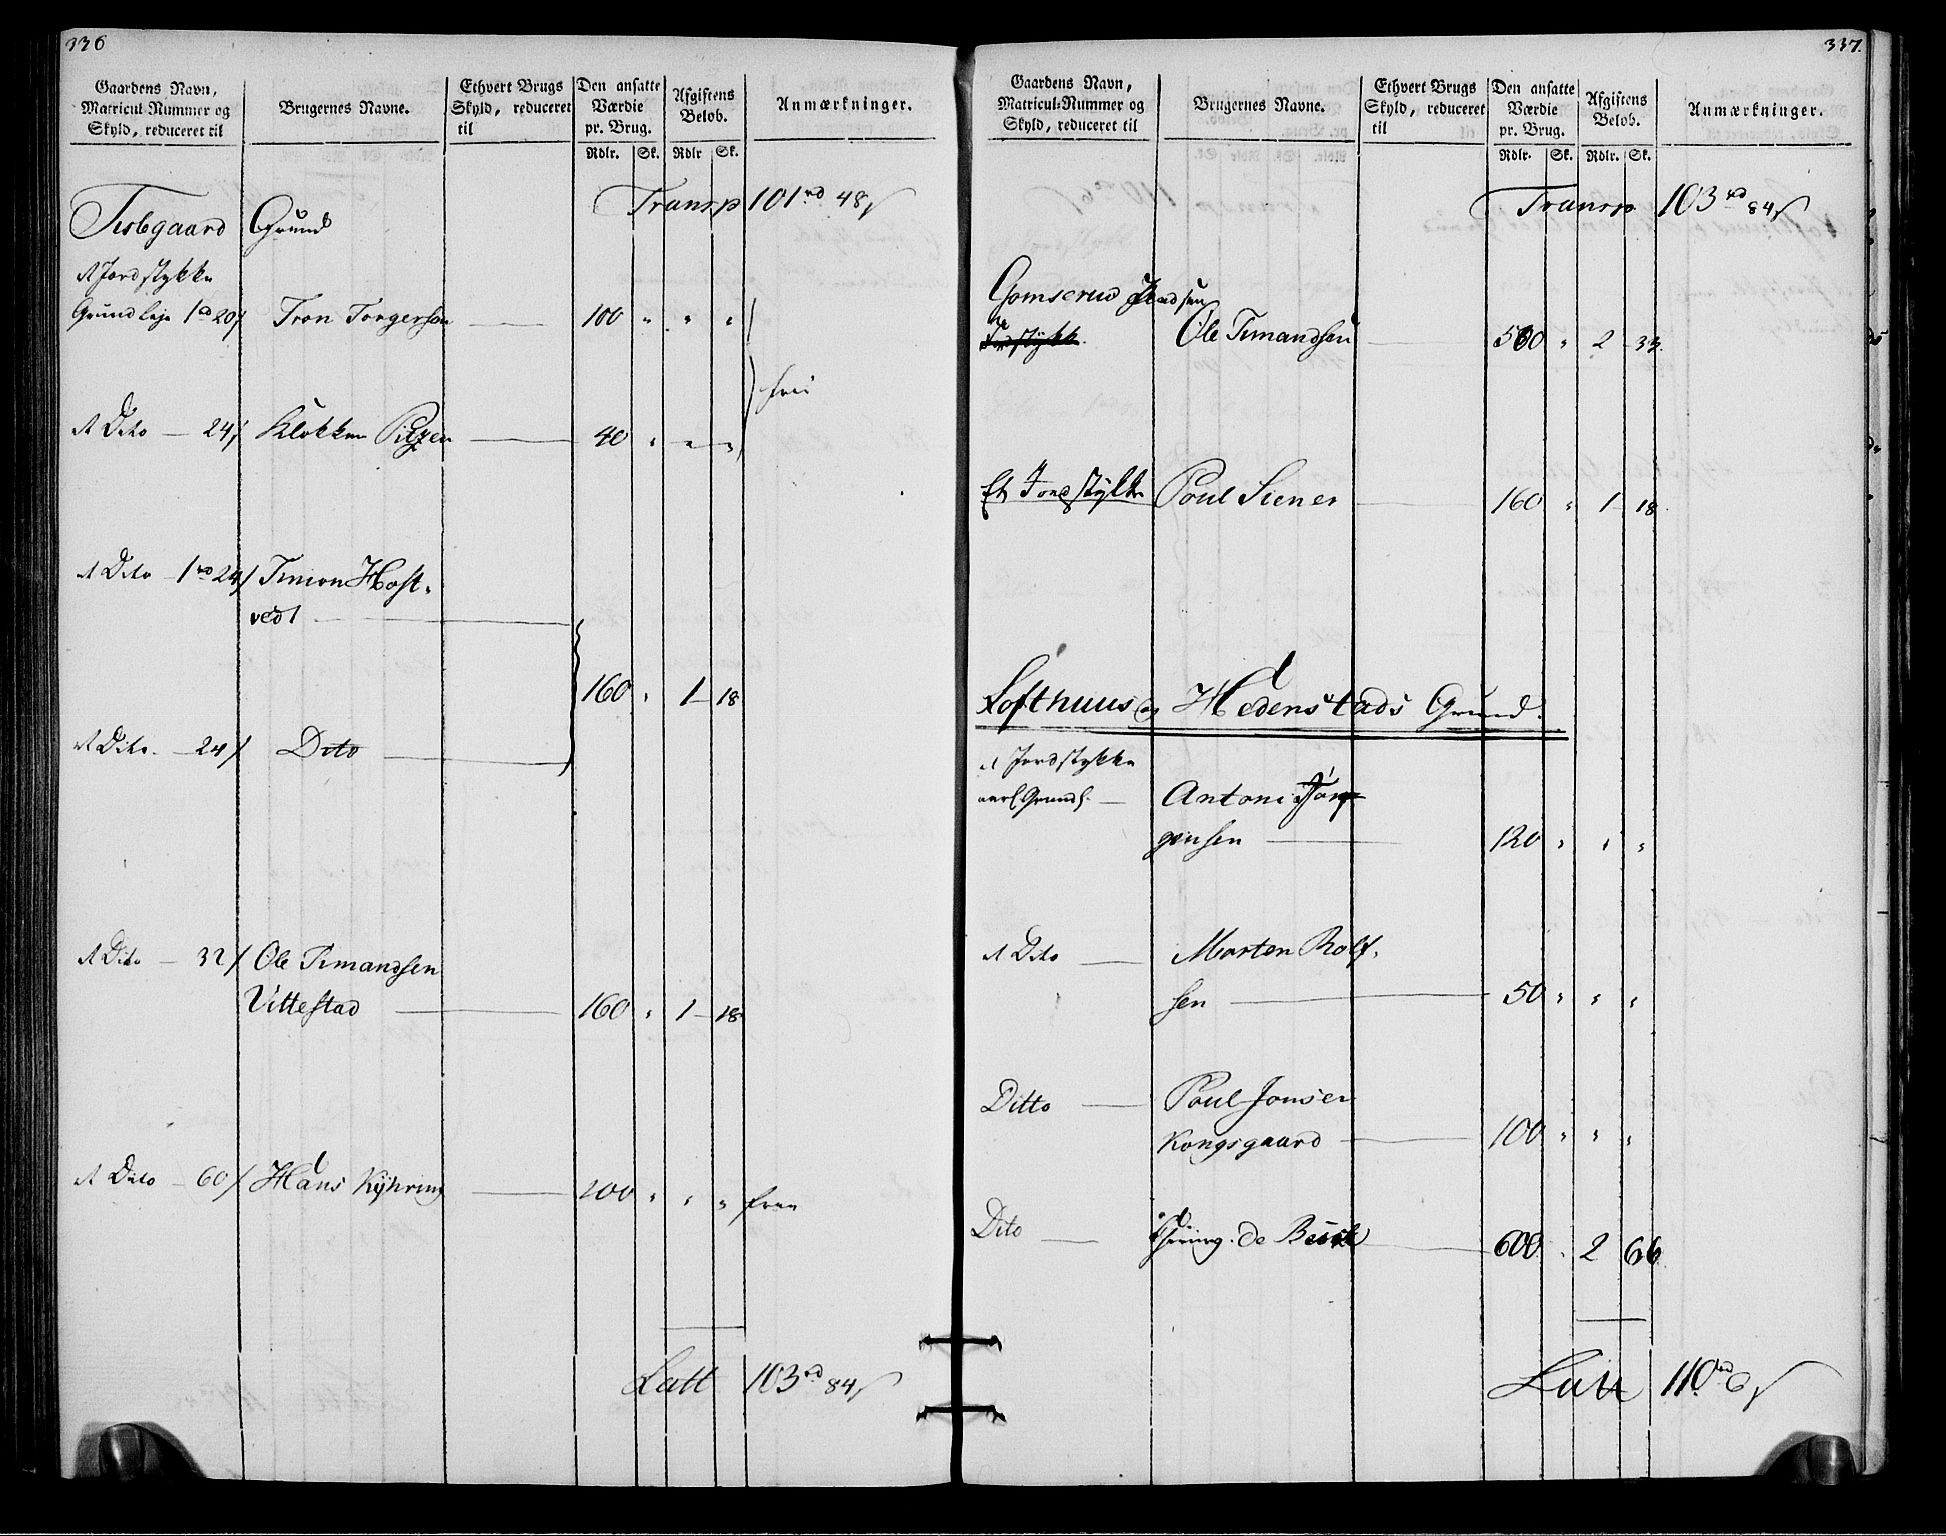 336
Gaardens Navn, Matricul-Nummer og Skyld, reduceret til
Brugernes Navne.
Ethvert Brugs Skyld, reduceret til
Den ansatte Værdie pr. Brug.
Afgiftens Beløb.
Anmærkninger.
Rdlr. Sk. Rdlr Sk.
Transp 101 rd 48 s
Grund
1 Jordstykke
Grundleje 1 rd 20 s Tron Torgersen 100 " " "
frie
1 Dito 24 s Klokker 40 " " "
1 Dito 1 rd 24 s Simon Host-
vedt
160 " 1 18
1 Dito 24 s Dito
1 Dito 32 s Ole Simandsen
Vittestad 160 " 1 18
1 Dito 60 s Hans Kyhring 200 " " " frie
Latt 103 rd 84 s
337.
Gaardens Navn, Matricul-Nummer og Skyld, reduceret til
Brugernes Navne.
Ethvert Brugs Skyld, reduceret til
Den ansatte Værdie pr. Brug.
Afgiftens Beløb.
Anmærkninger.
Rdlr. Sk. Rdlr. Sk.
Transp 103 rd 84 s
Gomserud
Ole Simandsen 500 " 2 33.
Et Jordstykke Poul Siener 160 " 1 18
Lofthuus og Hedenstads Grund.
1 Jordstykke
aarl. Grundl. Antoni Jør-
gensen 120 " " "
1 Dito Morten Rolf-
sen 50 " " "
Ditto Poul Jonsen
Kongsgaard 100 " " "
Dito de Besche 600 " 2 66
Latt 110 rd 6 s